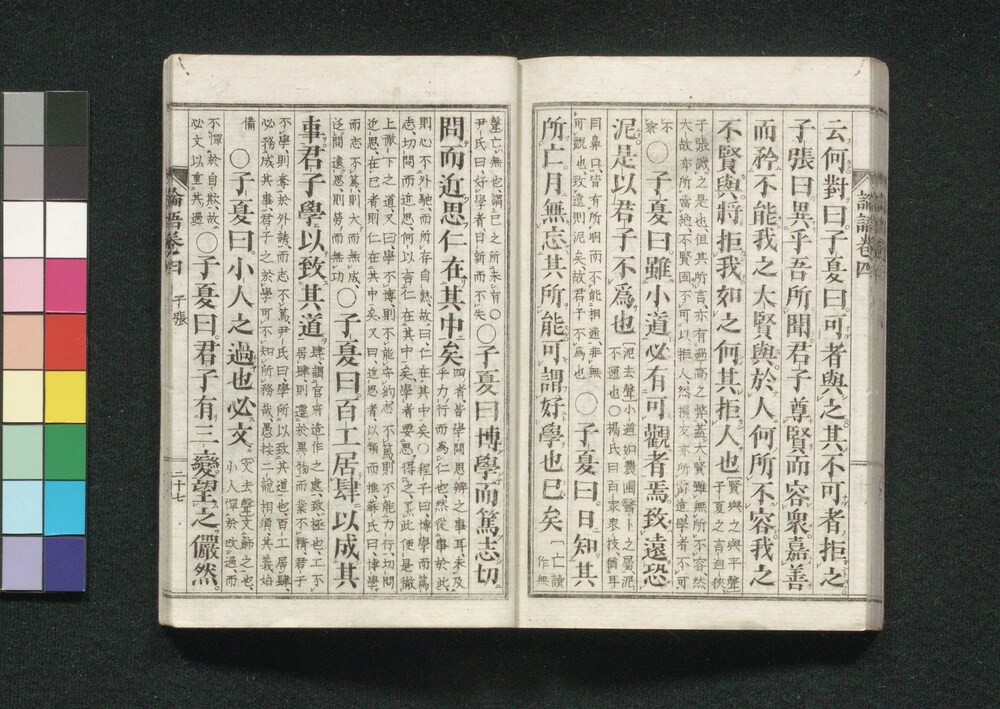 論語卷四
云何對曰子夏曰可者與之其不可者拒之
子張曰異乎吾所聞君子尊賢而容衆嘉善
而矜不能我之大賢與於人何所不容我之
不賢與將拒我如之何其拒人也
賢與之與平聲
子夏之言迫狹
子張譏之是也但其所言亦有過高之弊蓋大賢雖無所不容然
大故亦所當絶不賢固不可以拒人然損友亦所當遠學者不可
不
察
○子夏曰雖小道必有可觀者焉致遠恐
泥是以君子不爲也
泥去聲小道如農圃醫卜之屬泥
不通也○楊氏曰百家衆技猶耳
目鼻口皆有所明而不能相通非無
可觀也致遠則泥矣故君子不爲也
○子夏曰日知其
所亡月無忘其所能可謂好學也已矣
亡讀
作無
聲亡無也謂己之所未有○
尹氏曰好學者日新而不失
○子夏曰博學而篤志切
問而近思仁在其中矣
四者皆學問思辨之事耳未及
乎力行而爲仁也然從事於此
則心不外馳而所存自熟故曰仁在其中矣○程子曰博學而篤
志切問而近思何以言仁在其中矣學者要思得之了此便是徹
上徹下之道又曰學不博則不能守約志不篤則不能力行切問
近思在己者則仁在其中矣又曰近思者以類而推蘇氏曰博學
而志不篤則大而無成
泛問遠思則勞而無功
○子夏曰百工居肆以成其
事君子學以致其道
肆謂官府造作之處致極也工不
居肆則遷於異物而業不精君子
不學則奪於外誘而志不篤尹氏曰學所以致其道也百工居肆
必務成其事君子之於學可不知所務哉愚按二說相須其義始
備
○子夏曰小人之過也必文
文去聲文飾之也
小人憚於改過而
不憚於自欺故
必文以重其過
○子夏曰君子有三變望之儼然
論語卷四 子張 二十七